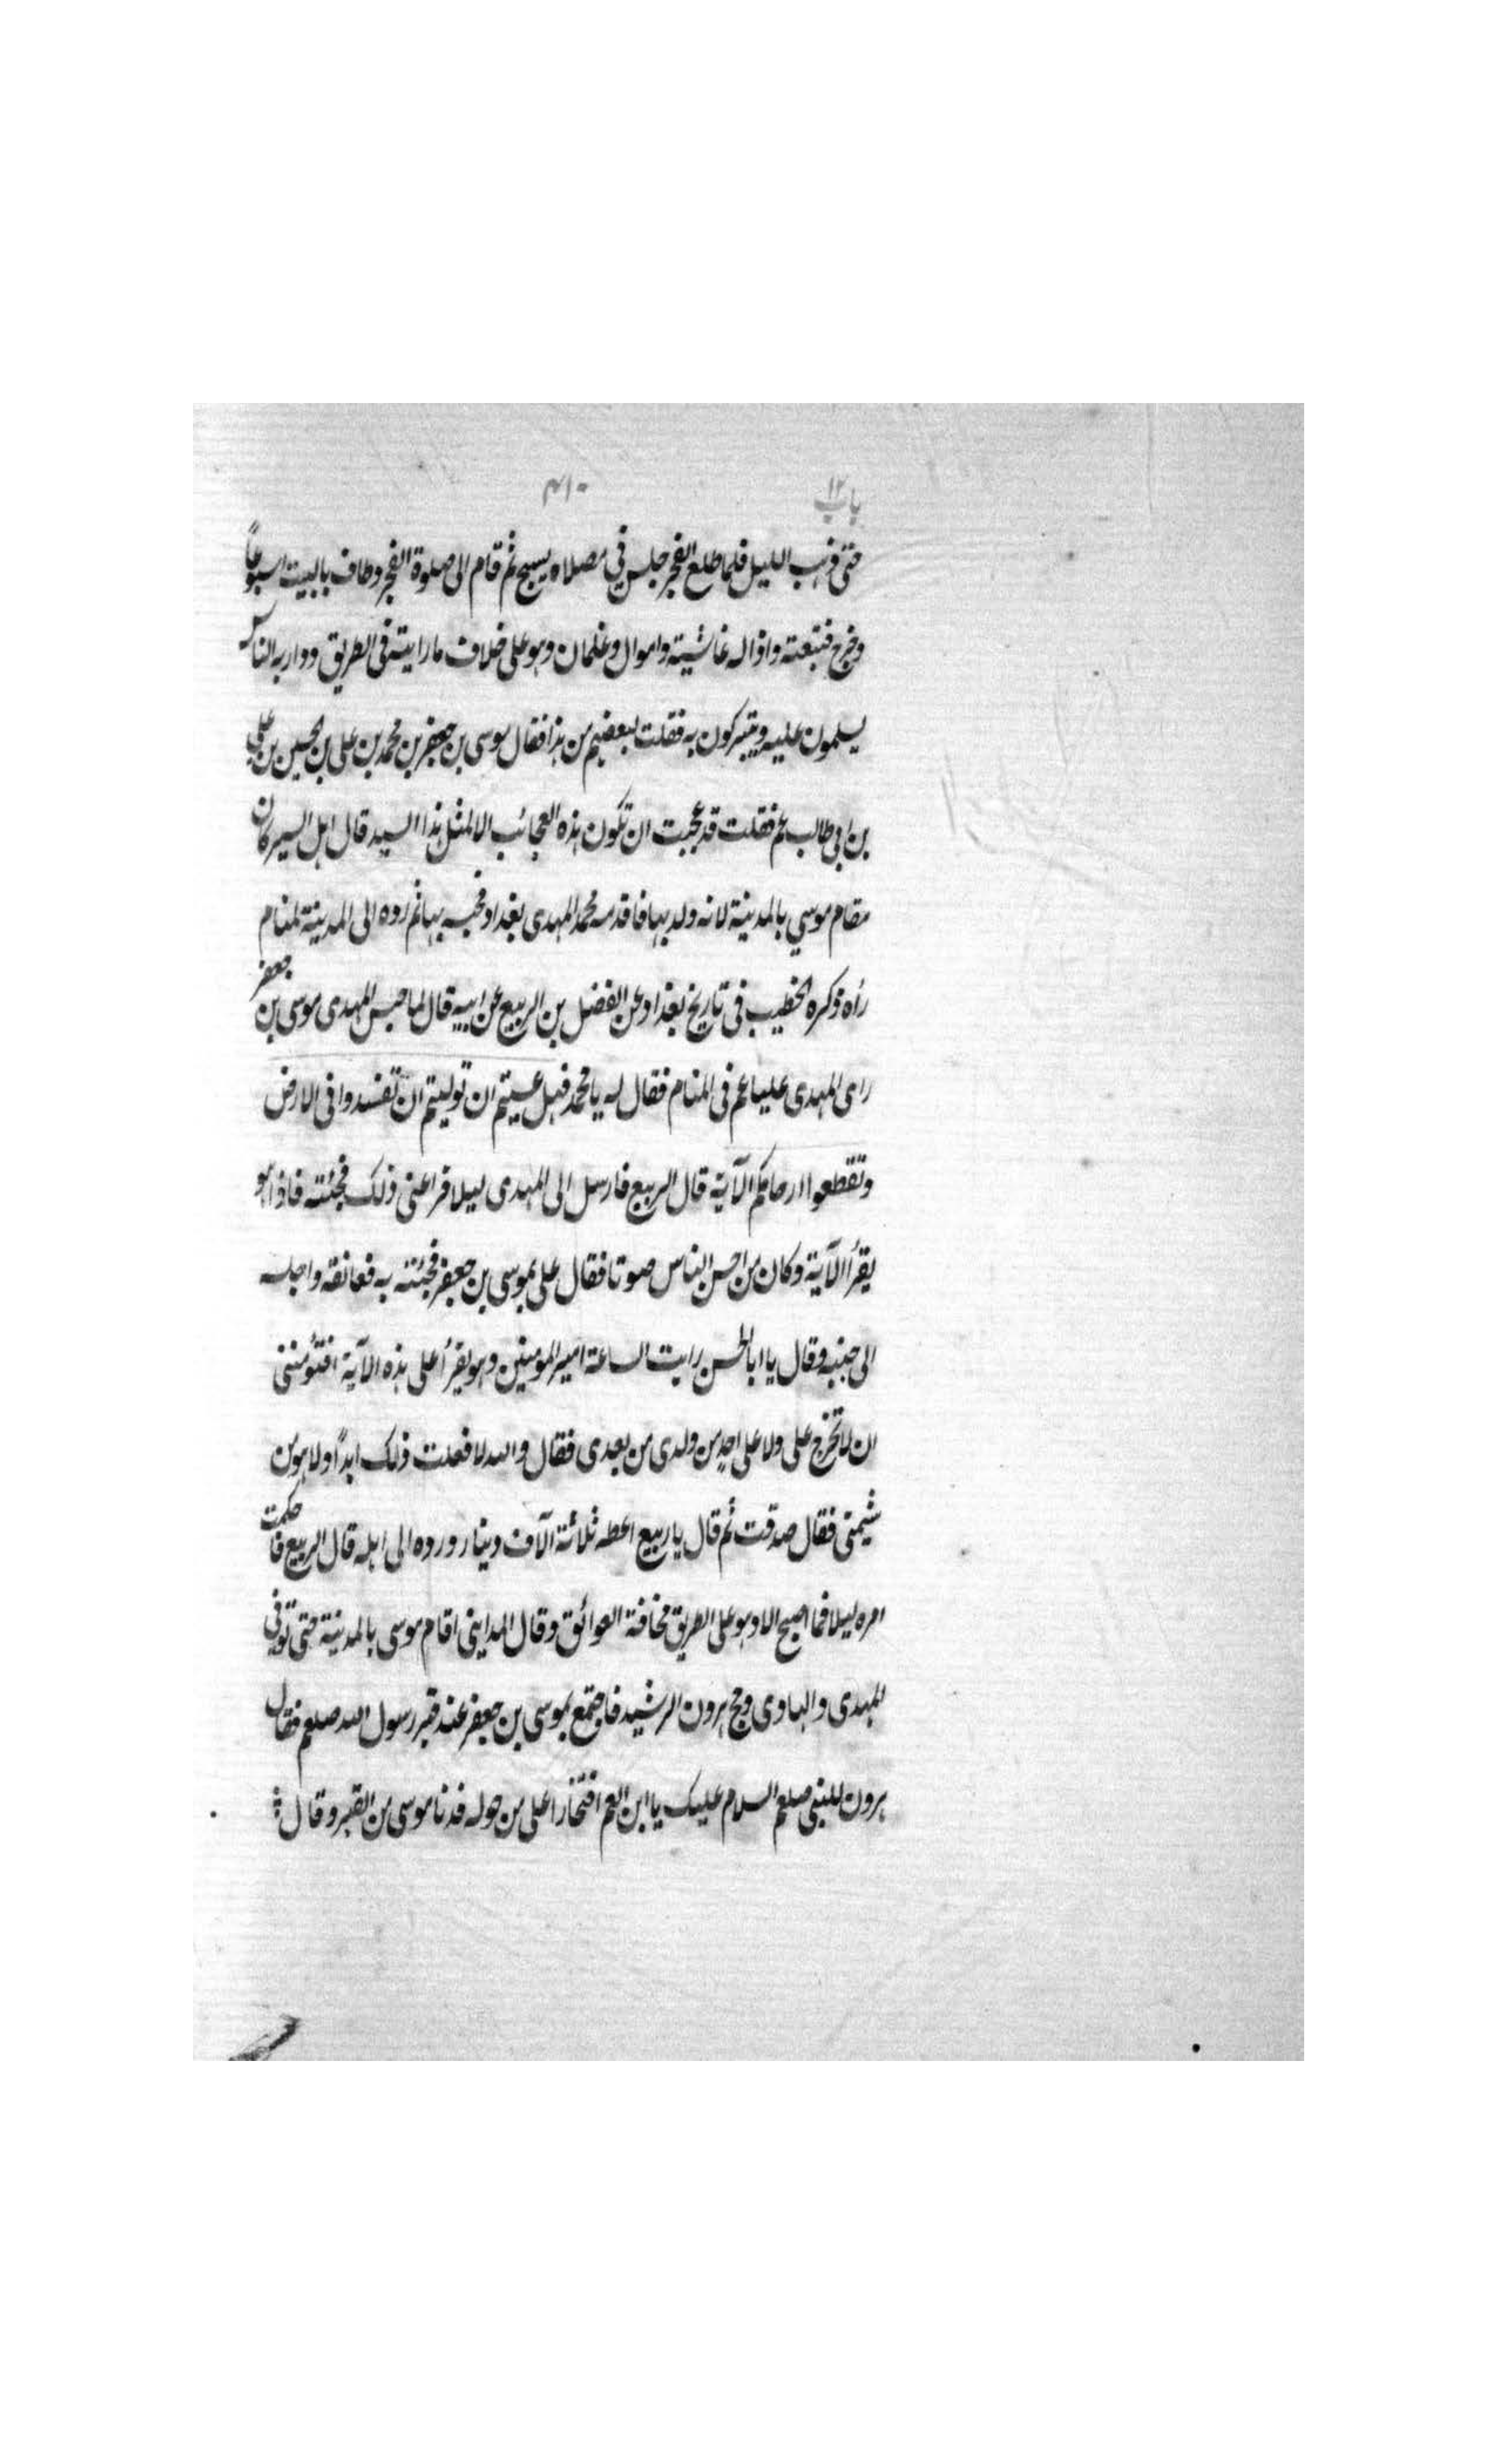 باب ١٢
٤١٠
حتى ذهب الليل فلما طلع الفجر جلس في مصلاه يسبح ثم قام الى صلوة الفجر وطاف بالبيت اسبوعاً
وخرج فتبعته واذا له غاشية واموال وغلمان وهو على خلاف ما رايته فى الطريق ودار به الناس
يسلمون عليه ويتبركون به فقلت لبعضهم من هذا فقال موسى بن جعفر بن محمد بن على بن الحسين بن علي
بن ابي طالب عم فقلت قد عجبت ان تكون هذه العجائب الا لمثل هذا السيد قال اهل السير كان
مقام موسي بالمدينة لانه ولد بها فاقدمه محمد المهدى بغداد فحبسه بها ثم رده الى المدينة لمنام
رأه ذكره الخطيب فى تاريخ بغداد عن الفضل بن الربيع عن ابيه قال لما حبس المهدى موسى بن جعفر
راى المهدى عليا عم فى المنام فقال له يا محمد فهل عسيتم ان توليتم ان تفسدوا فى الارض
وتقطعوا ارحامكم الآية قال الربيع فارسل الى المهدى ليلا فراعنى ذلك فجئته فاذا هو
يقرأ الآية وكان من احسن الناس صوتا فقال على بموسى بن جعفر فجئته به فعانقه واجلسه
الى جنبه وقال يا ابا الحسن رايت الساعة امير المومنين وهو يقرأ على هذه الآية افتؤمننى
ان لا تخرج على ولا على احد من ولدى من بعدى فقال والله لا فعلت ذلك ابداً ولا هو من
شيمتى فقال صدقت ثم قال يا ربيع اعطه ثلاثة آلاف دينار ورده الى اهله قال الربيع فاحكمت
امره ليلا فما اصبح الا وهو على الطريق مخافة العوائق وقال المداينى اقام موسى بالمدينة حتى توفى
المهدى والهادى وحج هرون الرشيد فاجتمع بموسى بن جعفر عند قبر رسول الله صلعم فقال
هرون للنبى صلعم السلام عليك يا ابن العم افتخارا على من حوله فدنا موسى من القبر وقال